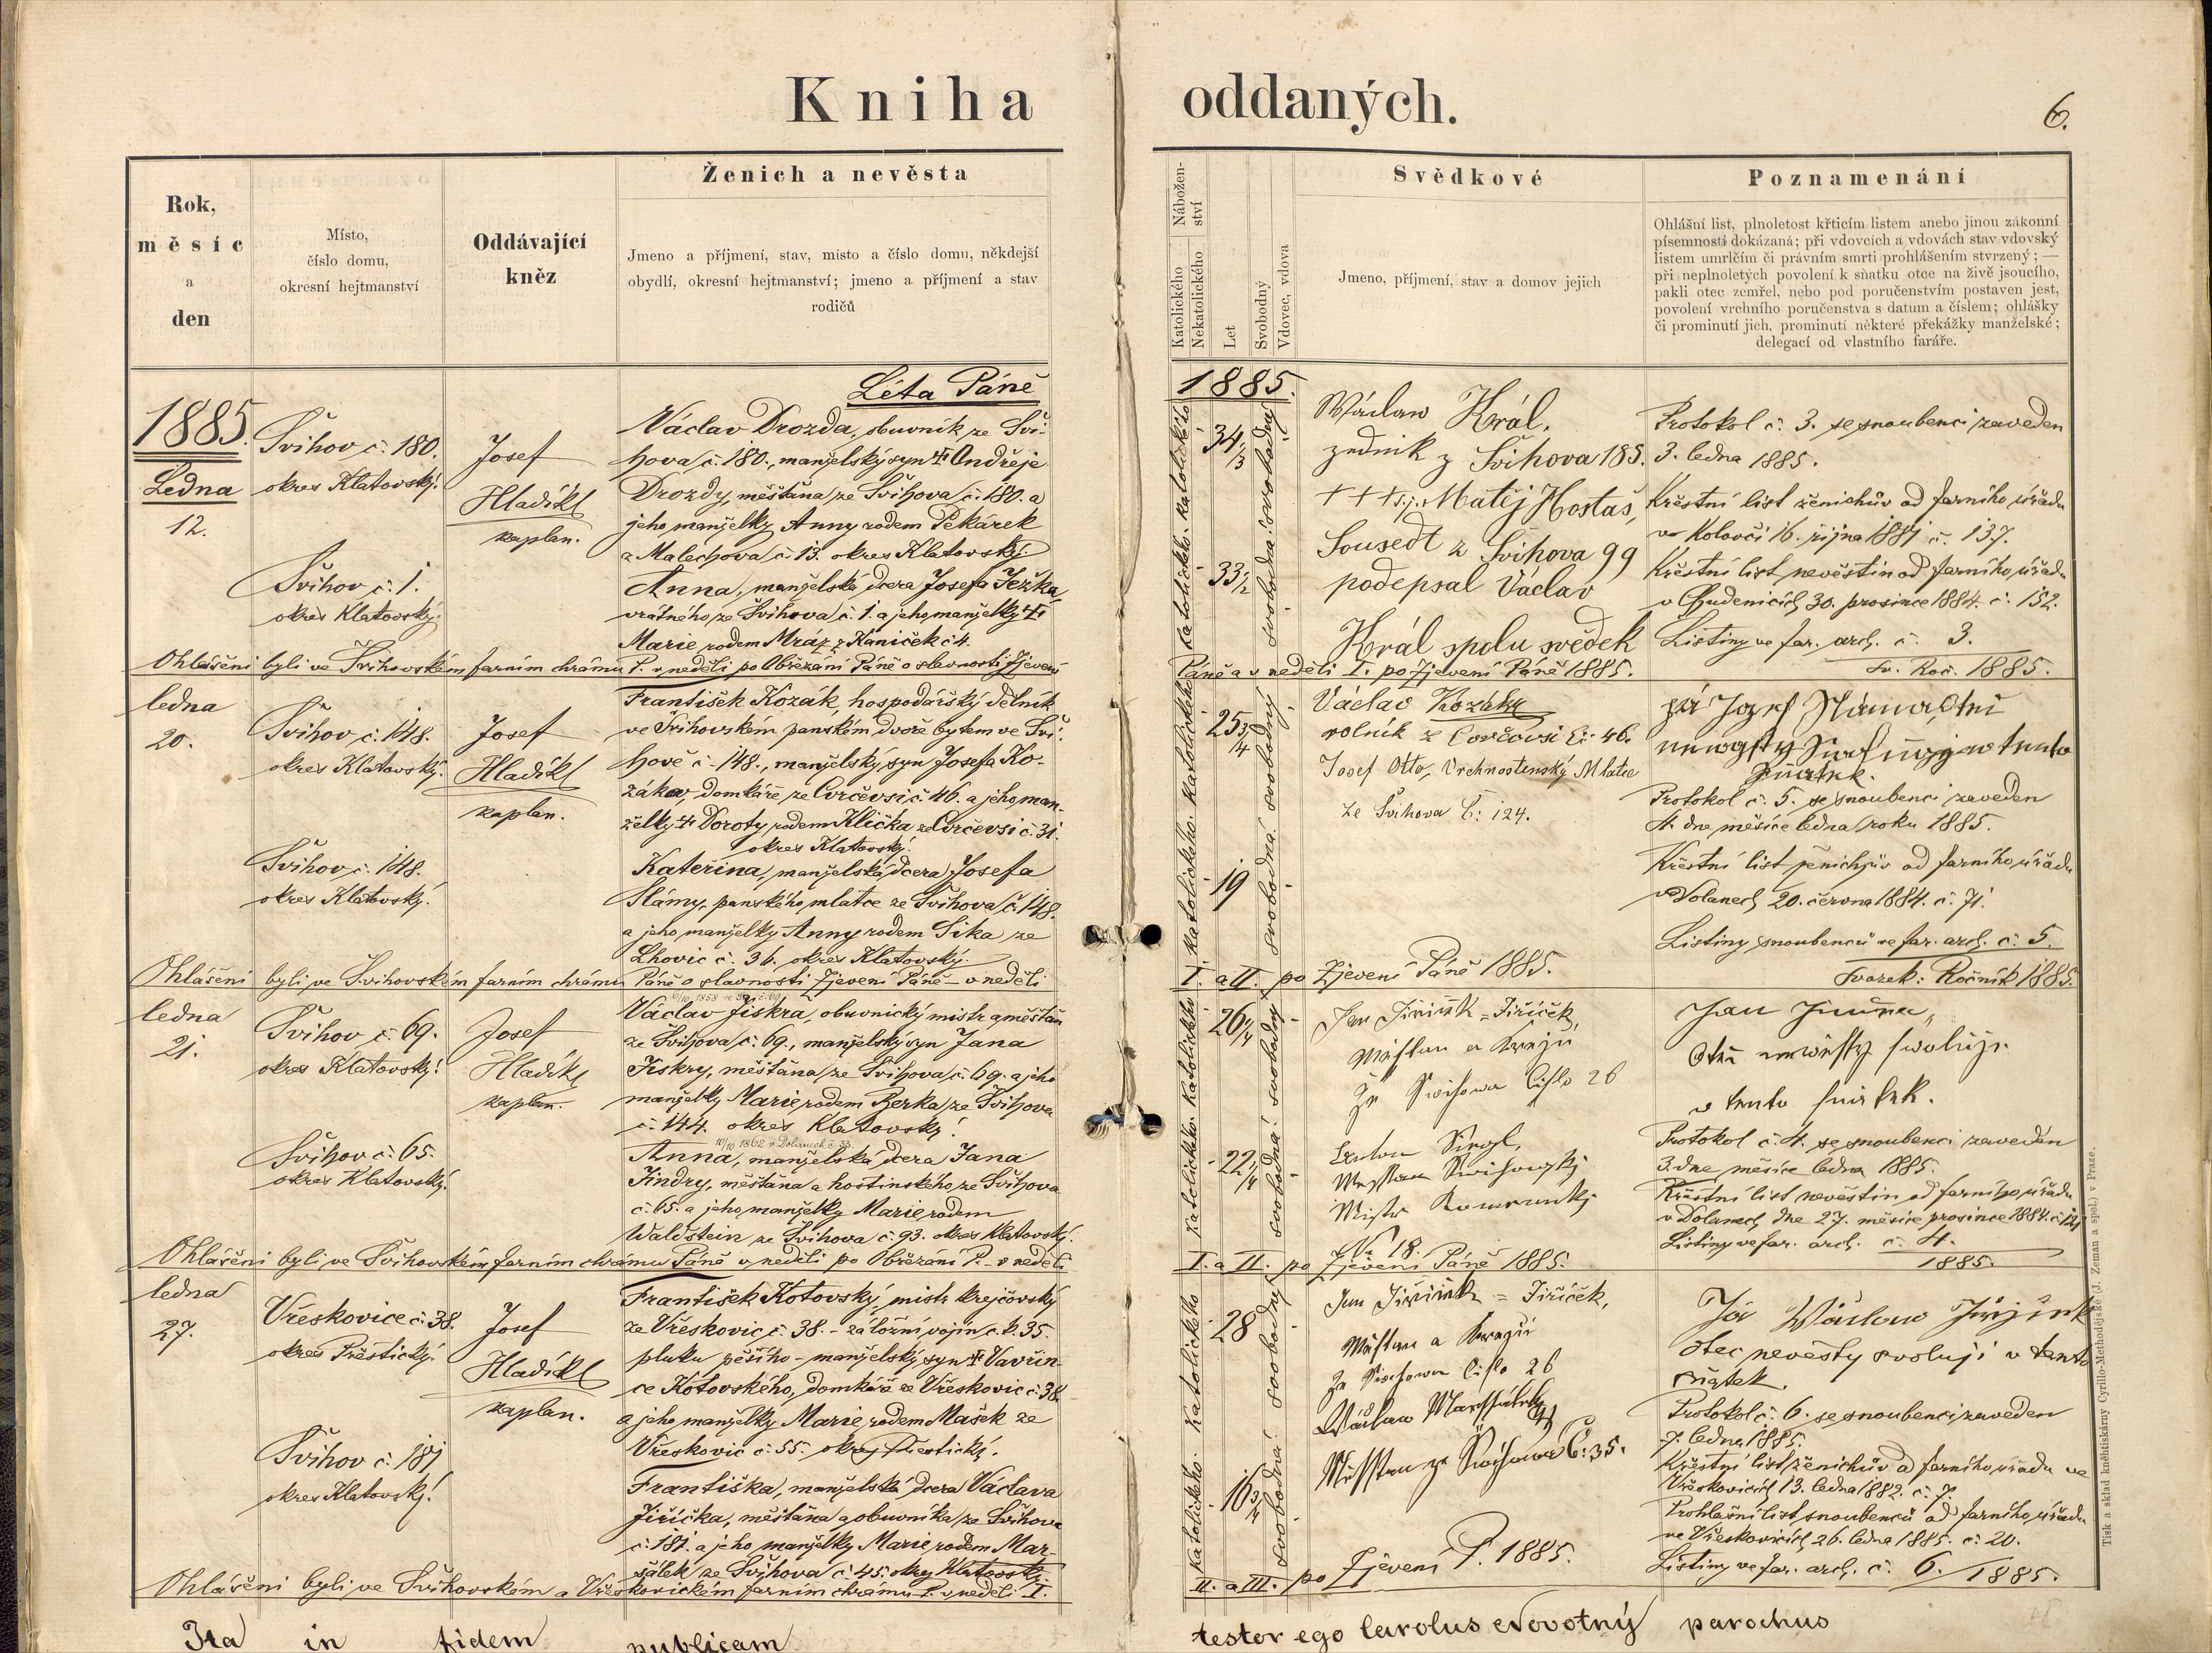 Kniha oddaných.
6.
Rok,
měsíc
a
den
Místo,
číslo domu,
okresní hejtmanství
Oddávající
kněz
Ženich a nevěsta
Jmeno a příjmení, stav, místo a číslo domu, někdejší
obydlí, okresní hejtmanství; jmeno a příjmení a stav
rodičů
Nábožen-
ství
Katolického
Nekatolického
Let
Svobodný
Vdovec, vdova
Svědkové
Jmeno, příjmení, stav a domov jejich
Poznamenání
Ohlášní list, plnoletost křticím listem anebo jinou zákonní
písemností dokázaná; při vdovcích a vdovách stav vdovský
listem umrlčím či právním smrti prohlášením stvrzený; —
při neplnoletých povolení k sňatku otce na živě jsoucího,
pakli otec zemřel, nebo pod poručenstvím postaven jest,
povolení vrchního poručenstva s datum a číslem; ohlášky
či prominutí jich, prominutí některé překážky manželské;
delegací od vlastního faráře.
Léta Páně 1885.
1885.
Ledna
12.
Švihov č. 180.
okres Klatovský.
Josef
Hladíkl
kaplan.
Václav Drozda, obuvník ze Švi-
hova č. 180., manželský syn † Ondřeje
Drozdy, měštana ze Švihova č. 180. a
jeho manželky Anny rodem Pekárek
z Malechova č. 13. okres Klatovský.
Švihov č. 1.
okres Klatovský.
Anna, manželská dcera Josefa Ježka,
vrátného ze Švihova č. 1. a jeho manželky †
Marie rodem Mráz z Kaniček č 4.
katolického. katolického
34 1/3
33 1/2
svobodná. svobodný
Václav Král.
zedník z Švihova 185.
+++ Matěj Hostaš,
Soused z Švihova 99
podepsal Václav
Král spolu svědek
Protokol č. 3. se snoubenci zaveden
3. ledna 1885.
Křestní list ženichův od farního úřadu
v Koloveči 16. října 1881 č. 137.
Křestní list nevěstin od farního úřadu
v Chudenicích 30. prosince 1884. č. 152.
Listiny ve far. arch. č. 3.
Sv. Roč. 1885.
Ohlášeni byli ve Švihovském farním chrámu P. v neděli po Obřezání Páně o slavnosti Zjevení
Páně a v neděli I. po Zjevení Páně 1885.
ledna
20.
Švihov č. 148.
okres Klatovský.
Josef
Hladíkl
kaplan.
František Kozák, hospodářský dělník
ve Švihovském panském dvoře bytem ve Švi-
hově č. 148., manželský syn Josefa Ko-
záka, domkáře ze Cvrčevsi č. 46. a jeho man-
želky † Doroty rodem Klička ze Cvrčevsi č. 31.
okres Klatovský.
Švihov č. 148.
okres Klatovský.
Kateřina, manželská dcera Josefa
Slámy, panského mlatce ze Švihova č. 148.
a jeho manželky Anny rodem Sika ze
Lhovic č. 36. okres Klatovský.
katolického. katolického
25 3/4
19
svobodná. svobodný
Václav Kozák
rolník z Cvrčovsi č. 46.
Josef Otto, Vrchnostenský Mlatec
ze Švihova č: 124.
sňatek.
Protokol č. 5. se snoubenci zaveden
4. dne měsíce ledna roku 1885.
Křestní list ženichův od farního úřadu
v Dolanech 20. června 1884. č. 71.
Listiny snoubenců ve far. arch. č. 5.
Svazek: Ročník 1885.
Ohlášeni byli ve Švihovském farním chrámu Páně o slavnosti Zjevení Páně – v neděli
I. a II. po Zjevení Páně 1885.
ledna
21.
Švihov č. 69.
okres Klatovský.
Josef
Hladíkl
kaplan.
Václav Jiskra, obuvnický mistr a měštan
ze Švihova č. 69., manželský syn Jana
Jiskry, měštana ze Švihova č. 69. a jeho
manželky Marie rodem Berka ze Švihova
č. 144. okres Klatovský.
Švihov č. 65.
okres Klatovský.
10/10 1862 v Dolanech č. 33
Anna, manželská dcera Jana
Jindry, měštana a hostinského ze Švihova
č. 65. a jeho manželky Marie rodem
Waldstein ze Švihova č. 93. okres Klatovský.
katolického. katolického
26 1/4
22 1/4
svobodná. svobodný
Jan Jiřiček = Jiříček,
Měštan a Krejčí
Ze Swihowa Čislo 26
Protokol č. 4. se snoubenci zaveden
3. dne měsíce ledna 1885.
Křestní list nevěstin od farního úřadu
v Dolanech dne 27. měsíce prosince 1884.
Listiny ve far. arch. č. 4.
1885.
Ohlášeni byli ve Švihovském farním chrámu Páně v neděli po Obřezání P. – v neděli
I. a II. po Zjevení Páně 1885.
ledna
27.
Vřeskovice č. 38.
okres Přeštický.
Josef
Hladíkl
kaplan.
František Kotovský, mistr krejčovský
ze Vřeskovic č. 38. – záložní vojín c. k. 35.
pluku pěšího – manželský syn † Vavřin-
ce Kotovského, domkáře ze Vřeskovic č. 38.
a jeho manželky Marie rodem Mašek ze
Vřeskovic č. 55. okres Přeštický.
Švihov č. 181
okres Klatovský.
Františka, manželská dcera Václava
Jiříčka, měštana a obuvníka ze Švihova
č. 181. a jeho manželky Marie rodem Mar-
šálek ze Švihova č. 45. okres Klatovský.
katolického. katolického
28
16 3/4
svobodná. svobodný
Jan Jiřiček = Jiříček,
Měštan a Krejčí
Ze Swihowa Čislo 26
Měštan ze Swihowa Č: 35.
Já Wáclaw Jiřiček
otec nevěsty svoluji v tento
sňatek.
Protokol č. 6. se snoubenci zaveden
7. ledna 1885.
Křestní list ženichův od farního úřadu ve
Vřeskovicích 13. ledna 1882. č. 7.
Prohlašní list snoubenců od farního úřadu
ve Vřeskovicích 26. ledna 1885. č. 20.
Listiny ve far. arch. č. 6. 1885.
Ohlášeni byli ve Švihovském a Vřeskovickém farním chrámu P. v neděli I.
II. a III. po Zjevení P. 1885.
Ita in fidem publicam testor ego Carolus Novotný parochus
Tisk a sklad knihtiskárny Cyrillo-Methodějské (J. Zeman a spol.) v Praze.